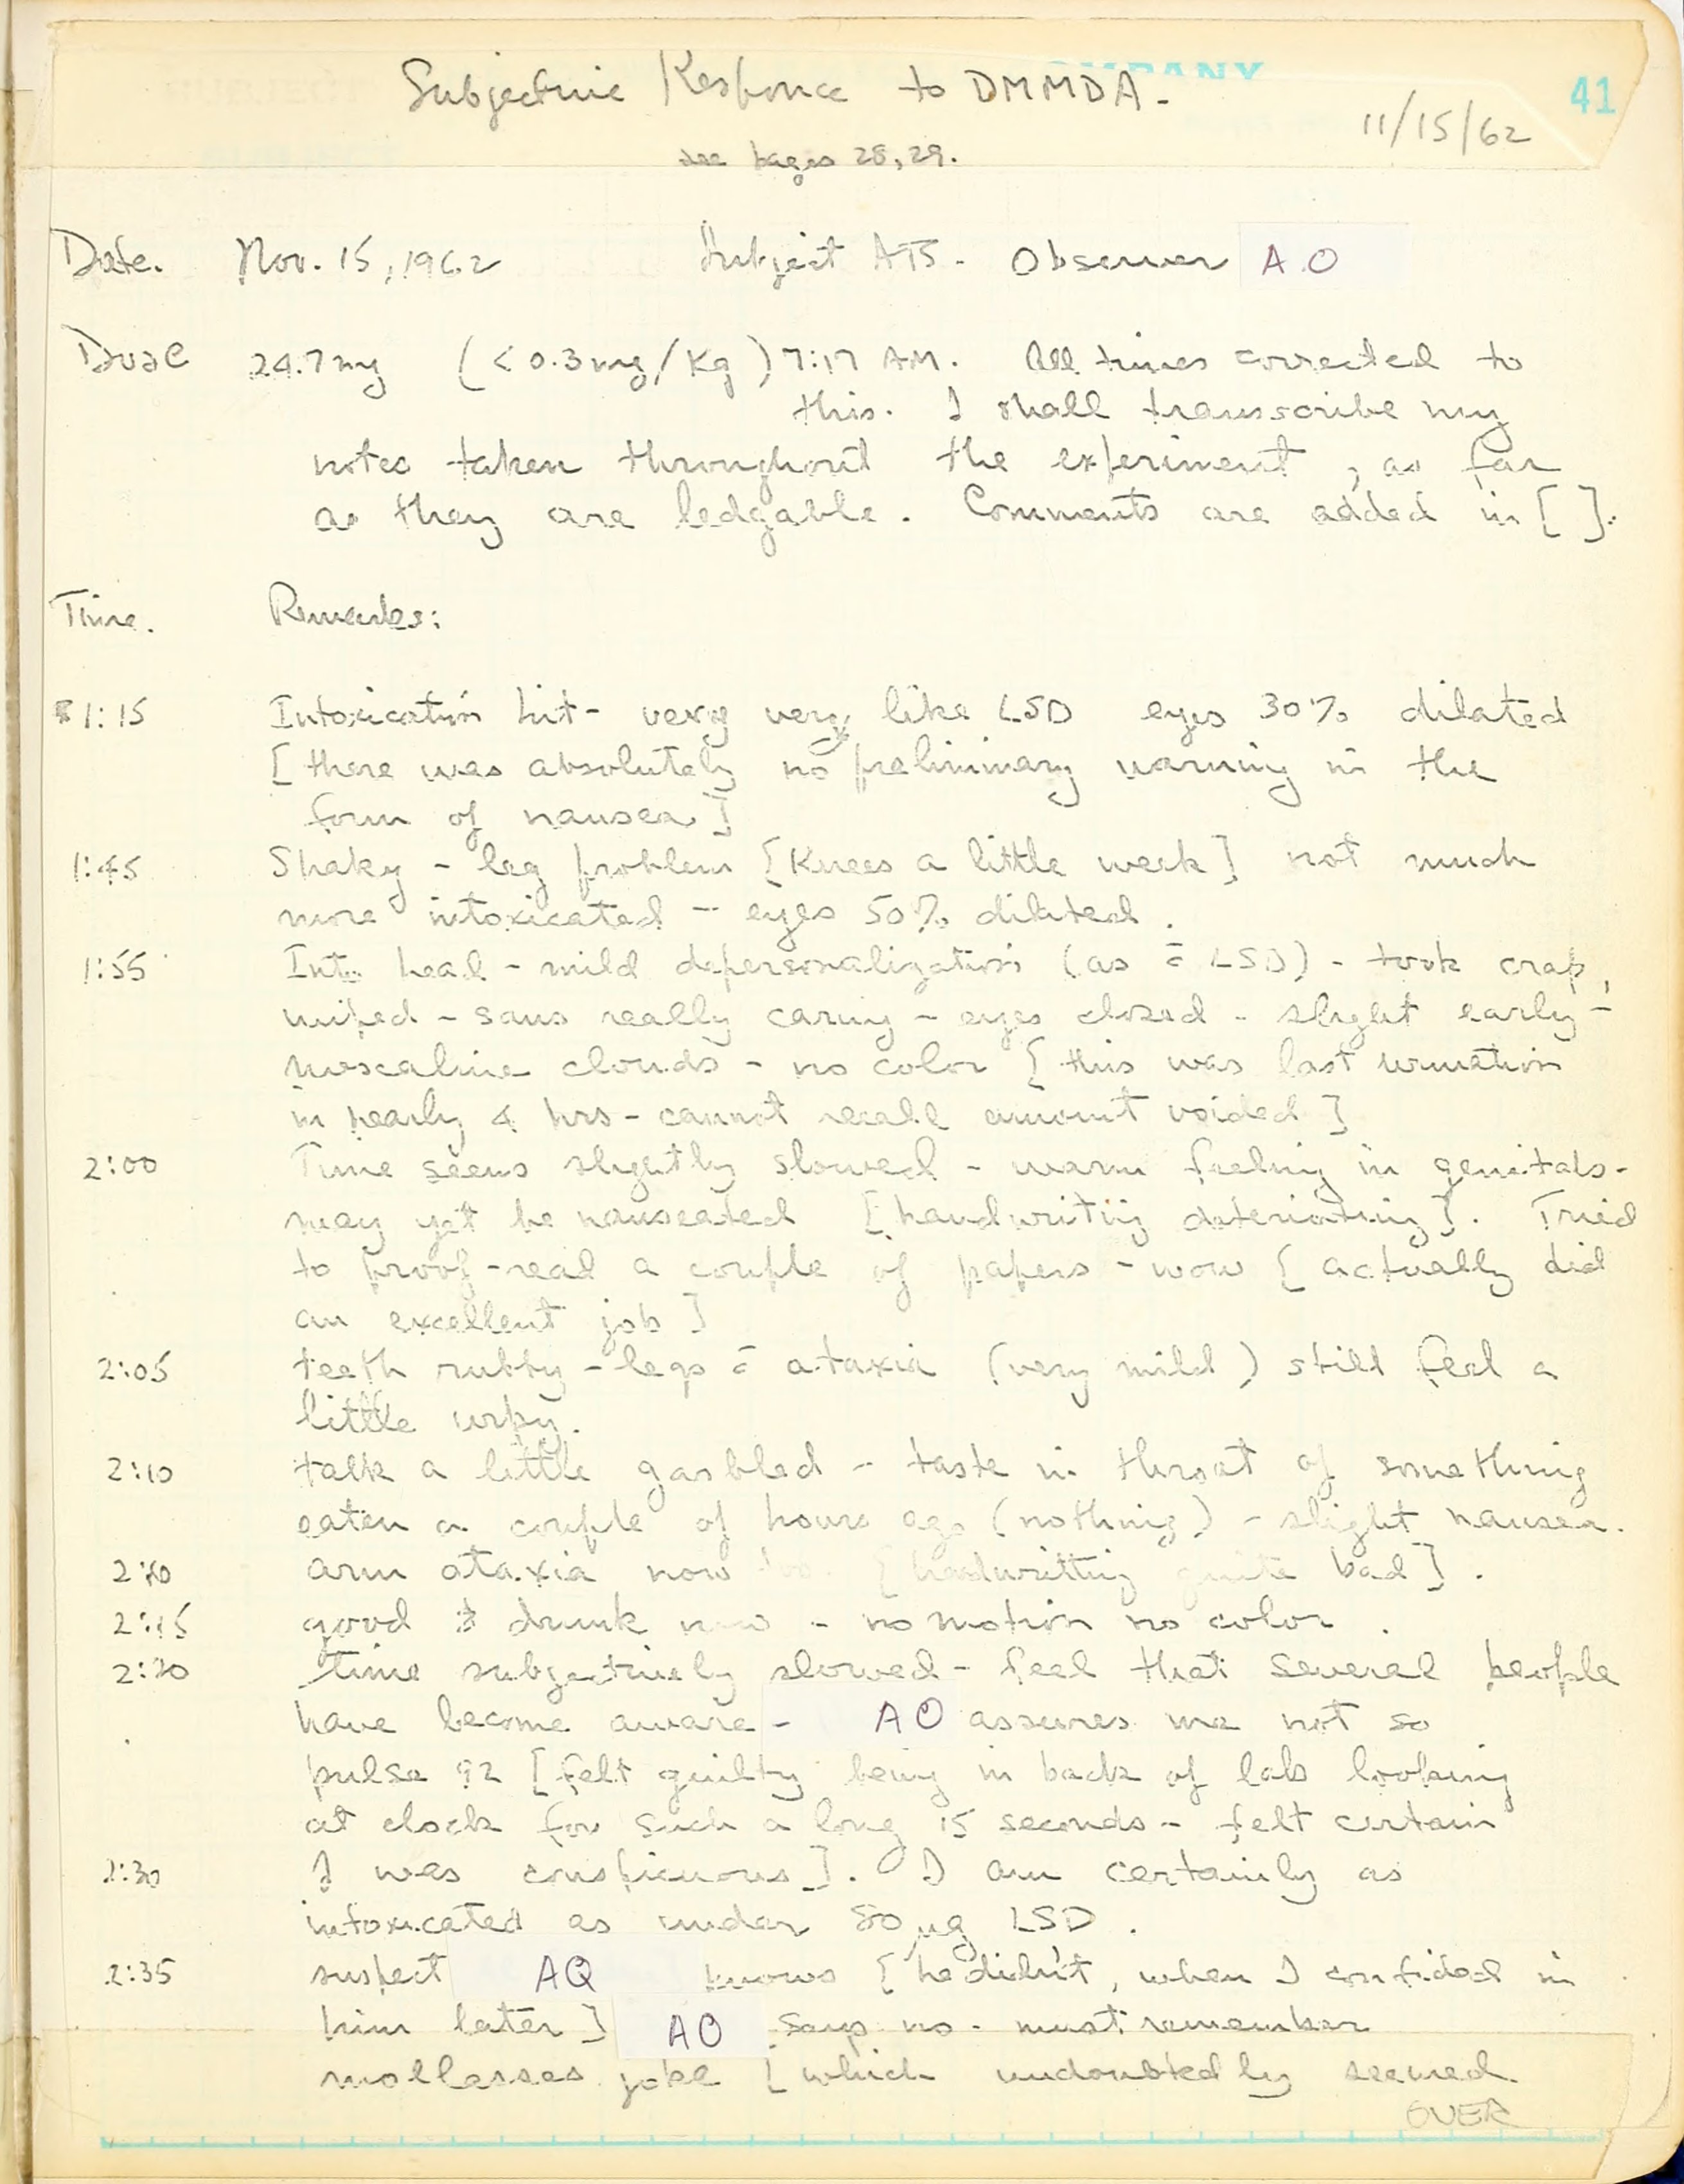 Subjective Responce to DMMDA-
41
11/15/62
see pages 28, 29.
Date. Nov. 15, 1962 Subject ATS- Observer A.O
Dose 24.7 mg (< 0.3 mg/Kg) 7:17 AM. All times corrected to
this. I shall transcribe my
notes taken throughout the experiment, as far
as they are ledgable. Comments are added in [ ].
Time. Remarks:
1:15 Intoxication hit- very very like LSD eyes 30% dilated
[there was absolutely no preliminary warning in the
form of nausea]
1:45 Shaky - leg problem [Knees a little weak] not much
more intoxicated - eyes 50% dilated.
1:55 Into head - mild depersonalization (as c̄ LSD) - took crap,
wiped - sans really caring - eyes closed - slight early-
mescaline clouds - no color [this was last urination
in nearly 4 hrs - cannot recall amount voided]
2:00 Time seems slightly slowed - warm feeling in genitals-
may yet be nauseated [handwriting deteriating]. Tried
to proof-read a couple of papers - wow [actually did
an excellent job]
2:05 teeth rubby - legs c̄ ataxia (very mild) still feel a
little urpy.
2:10 talk a little garbled - taste in throat of something
eaten a couple of hours ago (nothing) - slight nausea.
2:10 arm ataxia now too. [handwritting quite bad].
2:15 good & drunk now - no motion no color.
2:20 time subjectively slowed - feel that several people
have become aware - AO assures me not so
pulse 92 [felt guilty being in back of lab looking
at clock for such a long 15 seconds - felt certain
2:30 I was conspicuous]. I am certainly as
intoxicated as under 80 µg LSD.
2:35 suspect AQ knows [he didn't, when I confided in
him later] AO says no - must remember
mollasses joke [which undoubtedly seemed
OVER